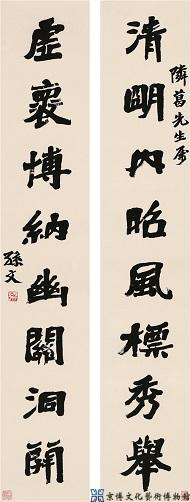 隣葛先生属
清明内昭風標秀舉
虛襄博納幽關洞開
孫文
京博文化藝術博物館